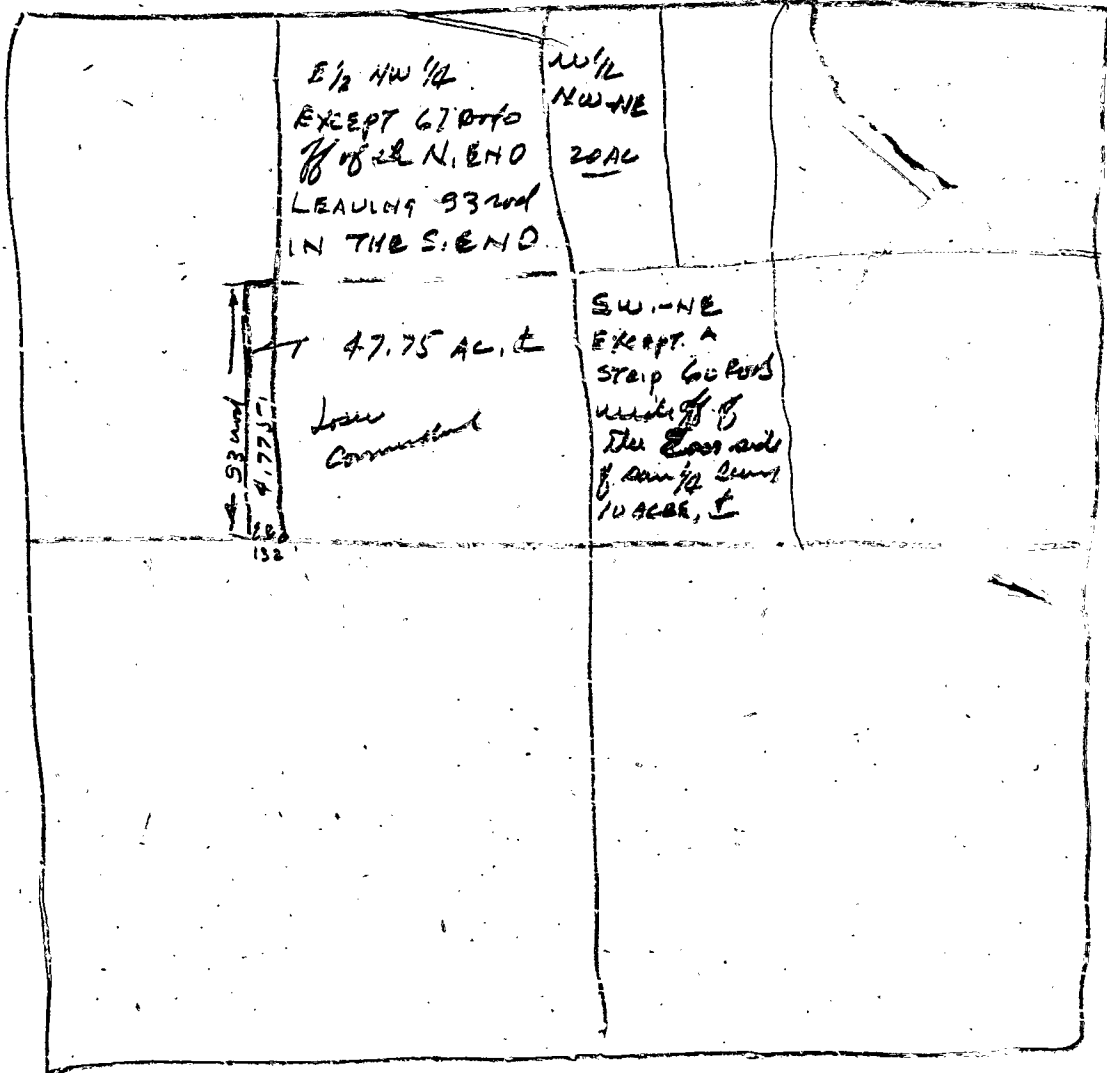 E 1/2 NW 1/4
EXCEPT 67 Rods
off of the N. END
LEAVING 93 rod
IN THE S. END
W 1/2
NW-NE
20 AC
93 rod
4.775
132'
47.75 AC. ±
SW.-NE
EXCEPT. A
STRIP Rods
wide off of
The East side
of 1/4 Being
10 ACRE, ±